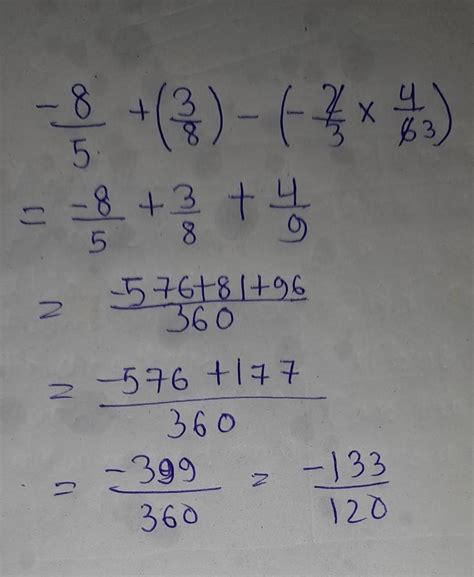 -8/5 + (3/8) - (-2/3 × 4/63)
= -8/5 + 3/8 + 4/9
= -576+81+96/360
= -576+177/360
= -399/360 = -133/120